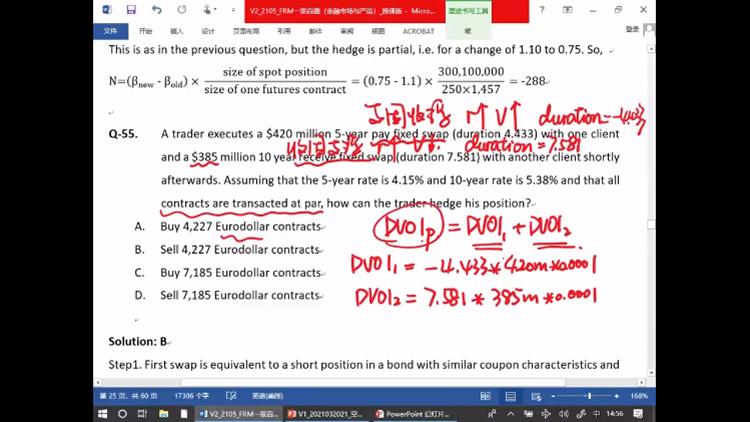 V2_2105_FRM一级百题（金融市场与产品）_授课版 - Micro...
墨迹书写工具
文件 开始 插入 设计 页面布局 引用 邮件 审阅 视图 ACROBAT 笔
登录
This is as in the previous question, but the hedge is partial, i.e. for a change of 1.10 to 0.75. So,
N=(βnew - βold) × size of spot position / size of one futures contract = (0.75 - 1.1) × 300,100,000 / 250×1,457 = -288
r↑ V↑ duration=-4.433
Q-55. A trader executes a $420 million 5-year pay fixed swap (duration 4.433) with one client
duration=7.581
and a $385 million 10 year receive fixed swap (duration 7.581) with another client shortly
afterwards. Assuming that the 5-year rate is 4.15% and 10-year rate is 5.38% and that all
contracts are transacted at par, how can the trader hedge his position?
A. Buy 4,227 Eurodollar contracts
B. Sell 4,227 Eurodollar contracts
C. Buy 7,185 Eurodollar contracts
D. Sell 7,185 Eurodollar contracts
DV01p = DV01₁ + DV01₂
DV01₁ = -4.433*420m*0.0001
DV01₂ = 7.581*385m*0.0001
Solution: B
Step1. First swap is equivalent to a short position in a bond with similar coupon characteristics and
第 25 页，共 60 页 17306 个字 英语(美国) 168%
V2_2105_FRM一级百... V1_2021032021_空... PowerPoint 幻灯片... 中 14:56